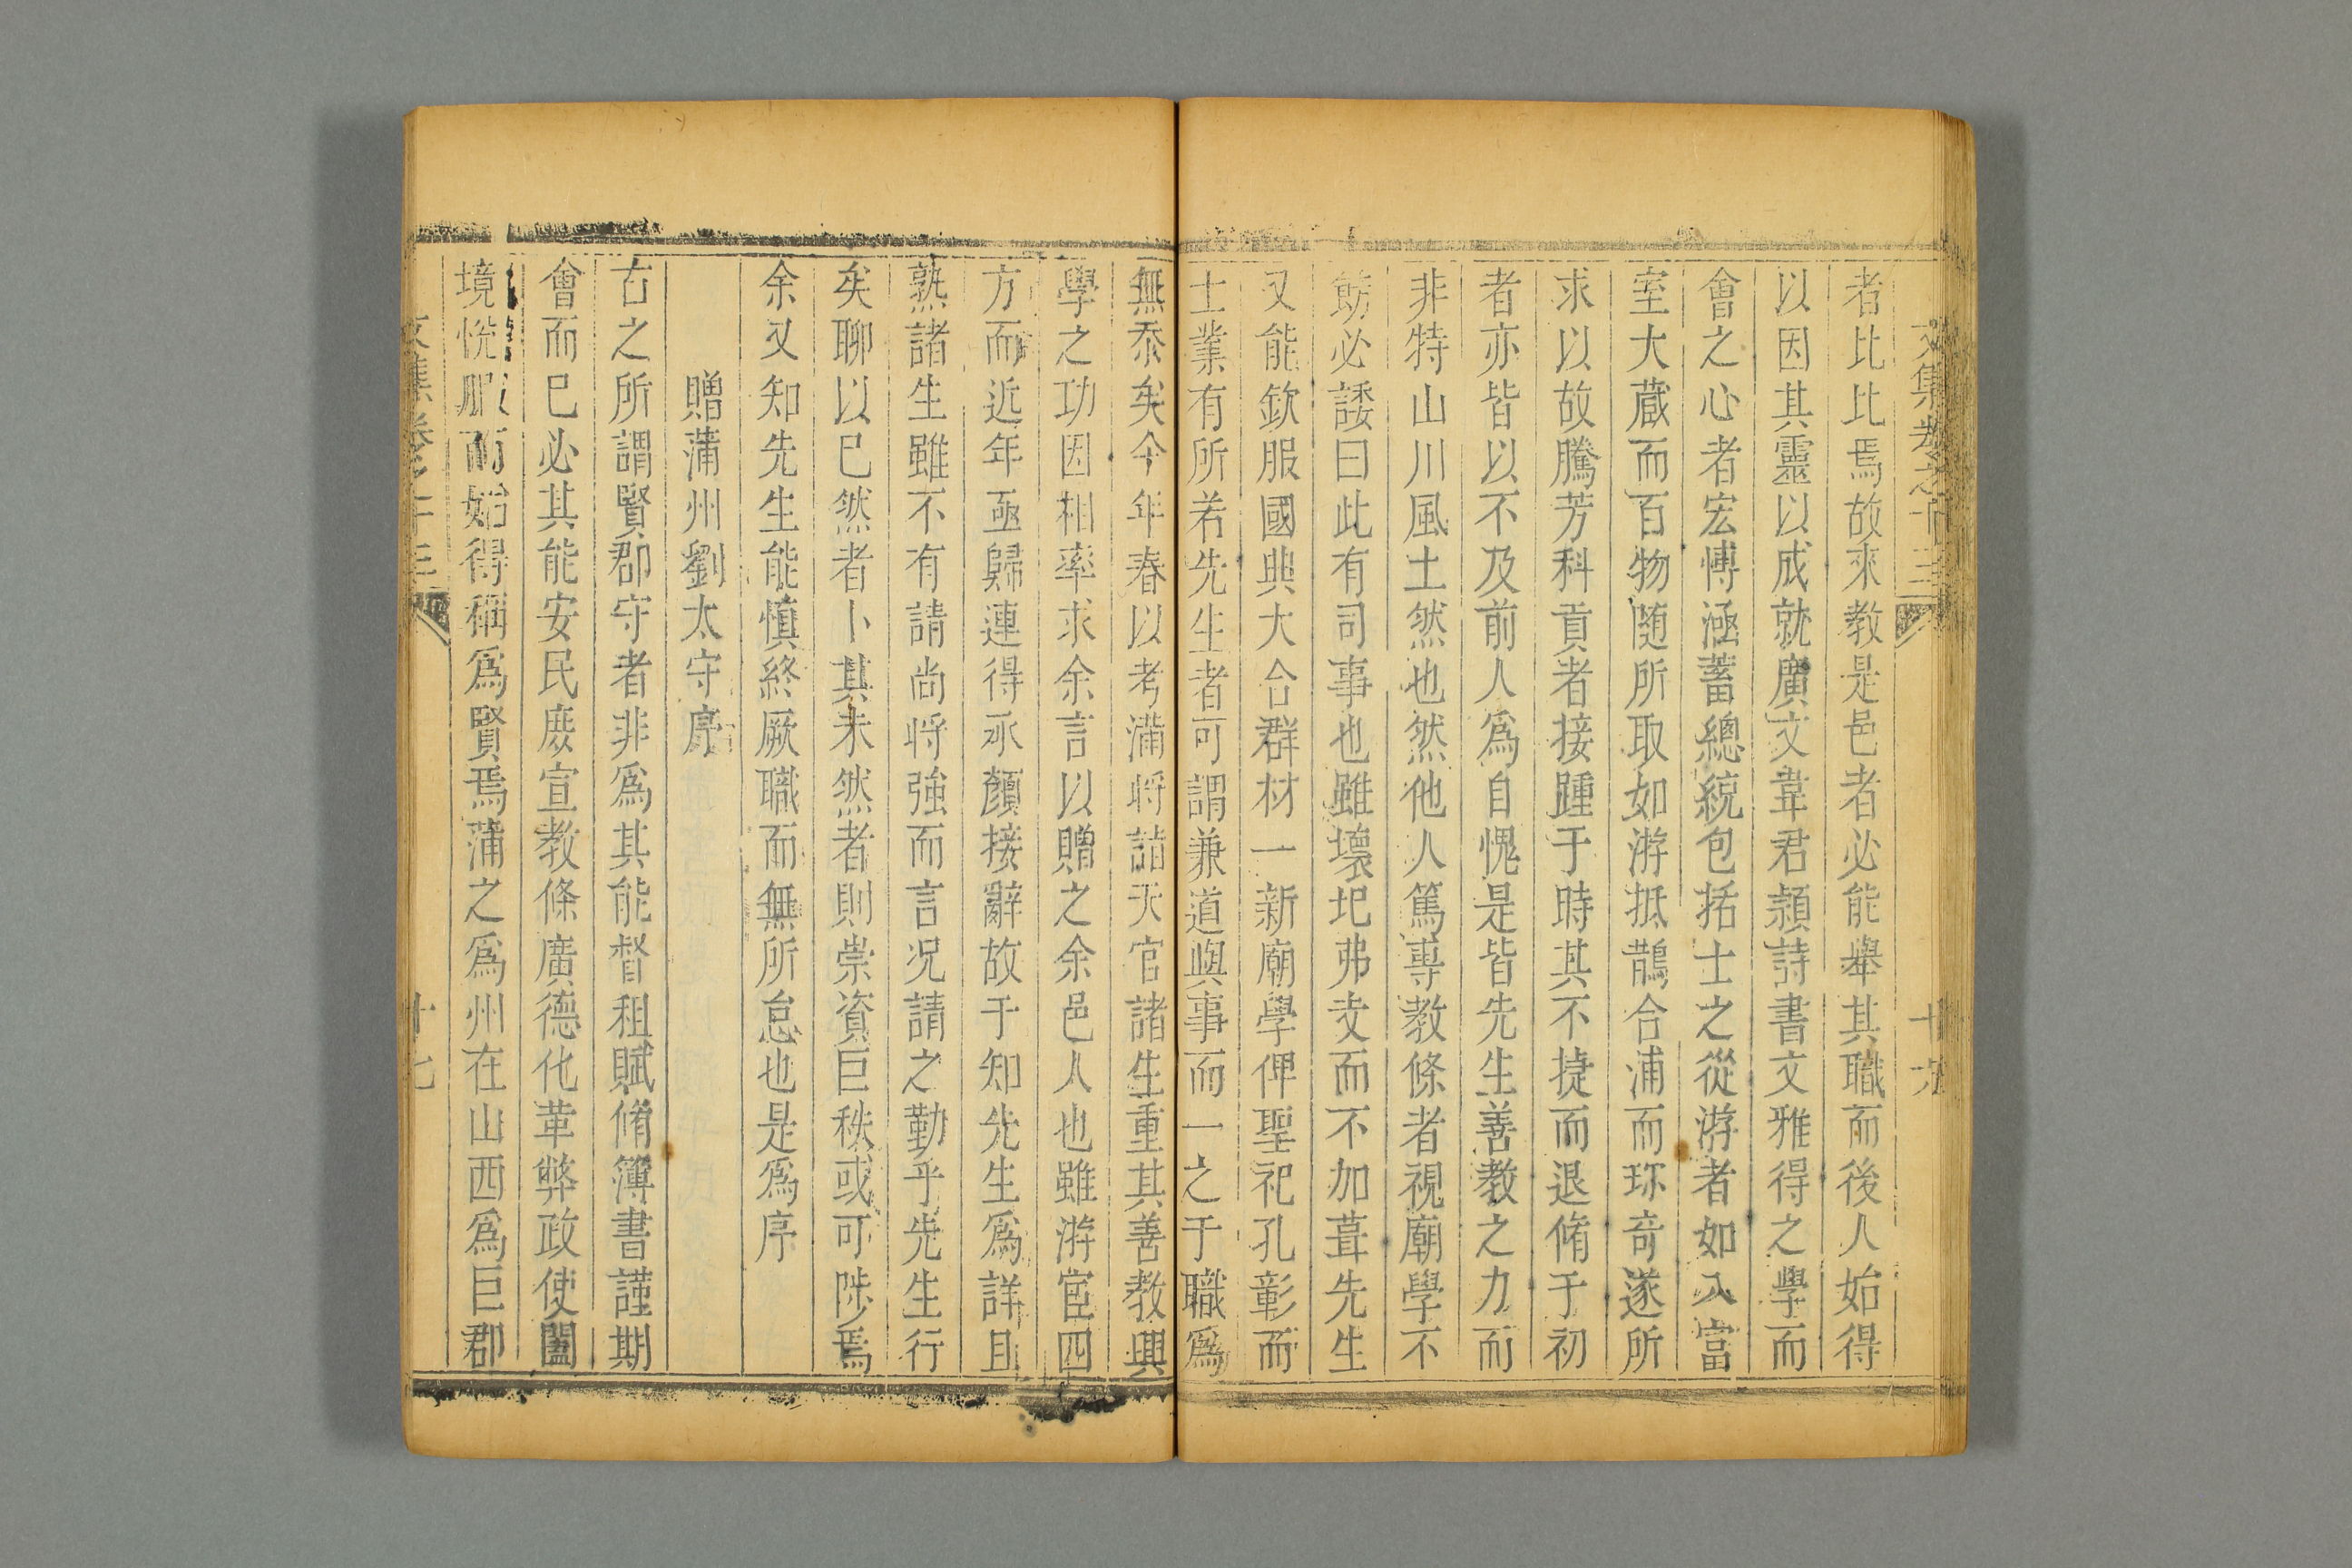 文集卷之十三
十六
者比比焉故來教是邑者必能舉其職而後人始得
以因其靈以成就廣文韋君頴詩書文雅得之學而
會之心者宏博涵蓄總統包括士之從游者如入富
室大藏而百物随所取如游抵鵲合浦而珎奇遂所
求以故騰芳科貢者接踵于時其不捷而退脩于初
者亦皆以不及前人爲自愧是皆先生善教之力而
非特山川風土然也然他人篤專教條者視廟學不
飭必諉曰此有司事也雖壞圮弗支而不加葺先生
又能欽服國典大合群材一新廟學俾聖祀孔彰而
士業有所若先生者可謂兼道與事而一之于職爲
無忝矣今年春以考滿将詣天官諸生重其善教興
學之功因相率求余言以贈之余邑人也雖游宦四
方而近年亟歸連得承顔接辭故于知先生爲詳且
熟諸生雖不有請尚将強而言况請之勤乎先生行
矣聊以已然者卜其未然者則崇資巨秩或可陟焉
余又知先生能慎終厥職而無所怠也是爲序
贈蒲州劉太守序
古之所謂賢郡守者非爲其能督租賦脩簿書謹期
會而已必其能安民庶宣教條廣德化革弊政使闔
境悅服而始得稱爲賢焉蒲之爲州在山西爲巨郡
文集卷之十三
十七